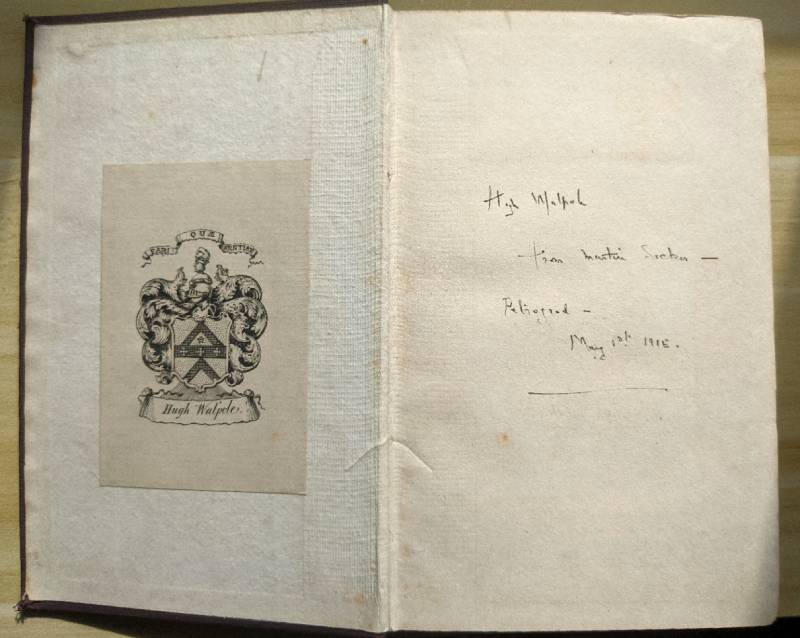 FARI QUÆ SENTIAT
Hugh Walpole.
Hugh Walpole
- from Martin Secker -
Petrograd -
May 1st 1915.